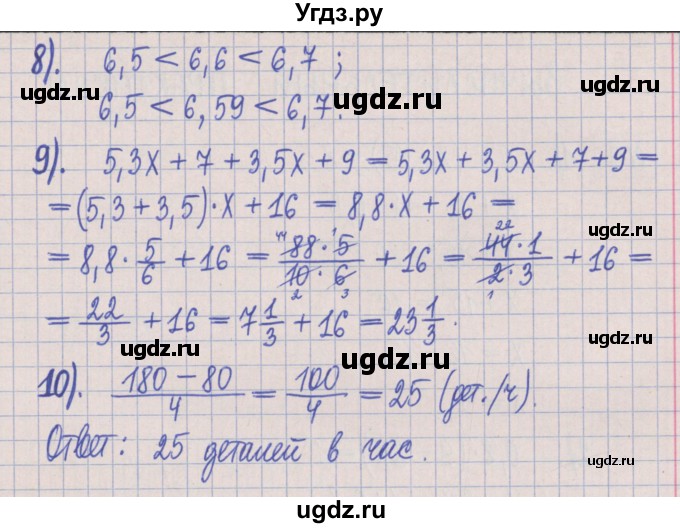 Угдз.ру
8). 6,5 < 6,6 < 6,7 ;
ugdz.ru ugdz.ru
6,5 < 6,59 < 6,7.
ugdz.ru
9). 5,3x + 7 + 3,5x + 9 = 5,3x + 3,5x + 7 + 9 =
= (5,3 + 3,5) · x + 16 = 8,8 · x + 16 =
ugdz.ru ugdz.ru
= 8,8 · 5/6 + 16 = 88 · 5/10 · 6 + 16 = 44 · 1/2 · 3 + 16 =
ugdz.ru
= 22/3 + 16 = 7 1/3 + 16 = 23 1/3.
ugdz.ru ugdz.ru
10). 180 - 80/4 = 100/4 = 25 (дет./ч).
ugdz.ru
Ответ: 25 деталей в час.
ugdz.ru ugdz.ru
Угдз.ру